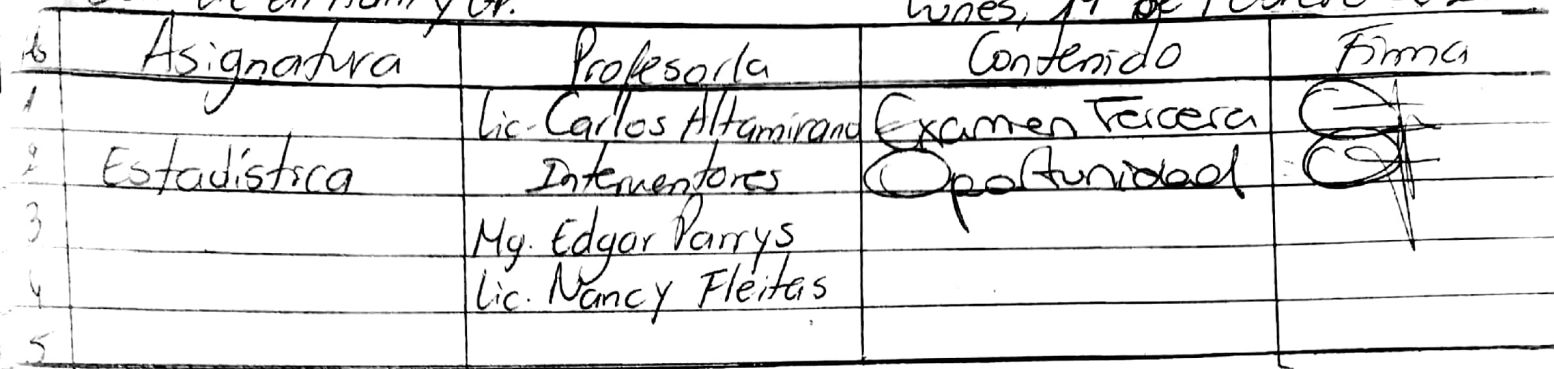 Lunes, 19 de
Asignatura Profesor/a Contenido Firma
1 Lic. Carlos Altamirano Examen Tercera
2 Estadística Interventores Oportunidad
3 Mg. Edgar Parrys
4 Lic. Nancy Fleitas
5